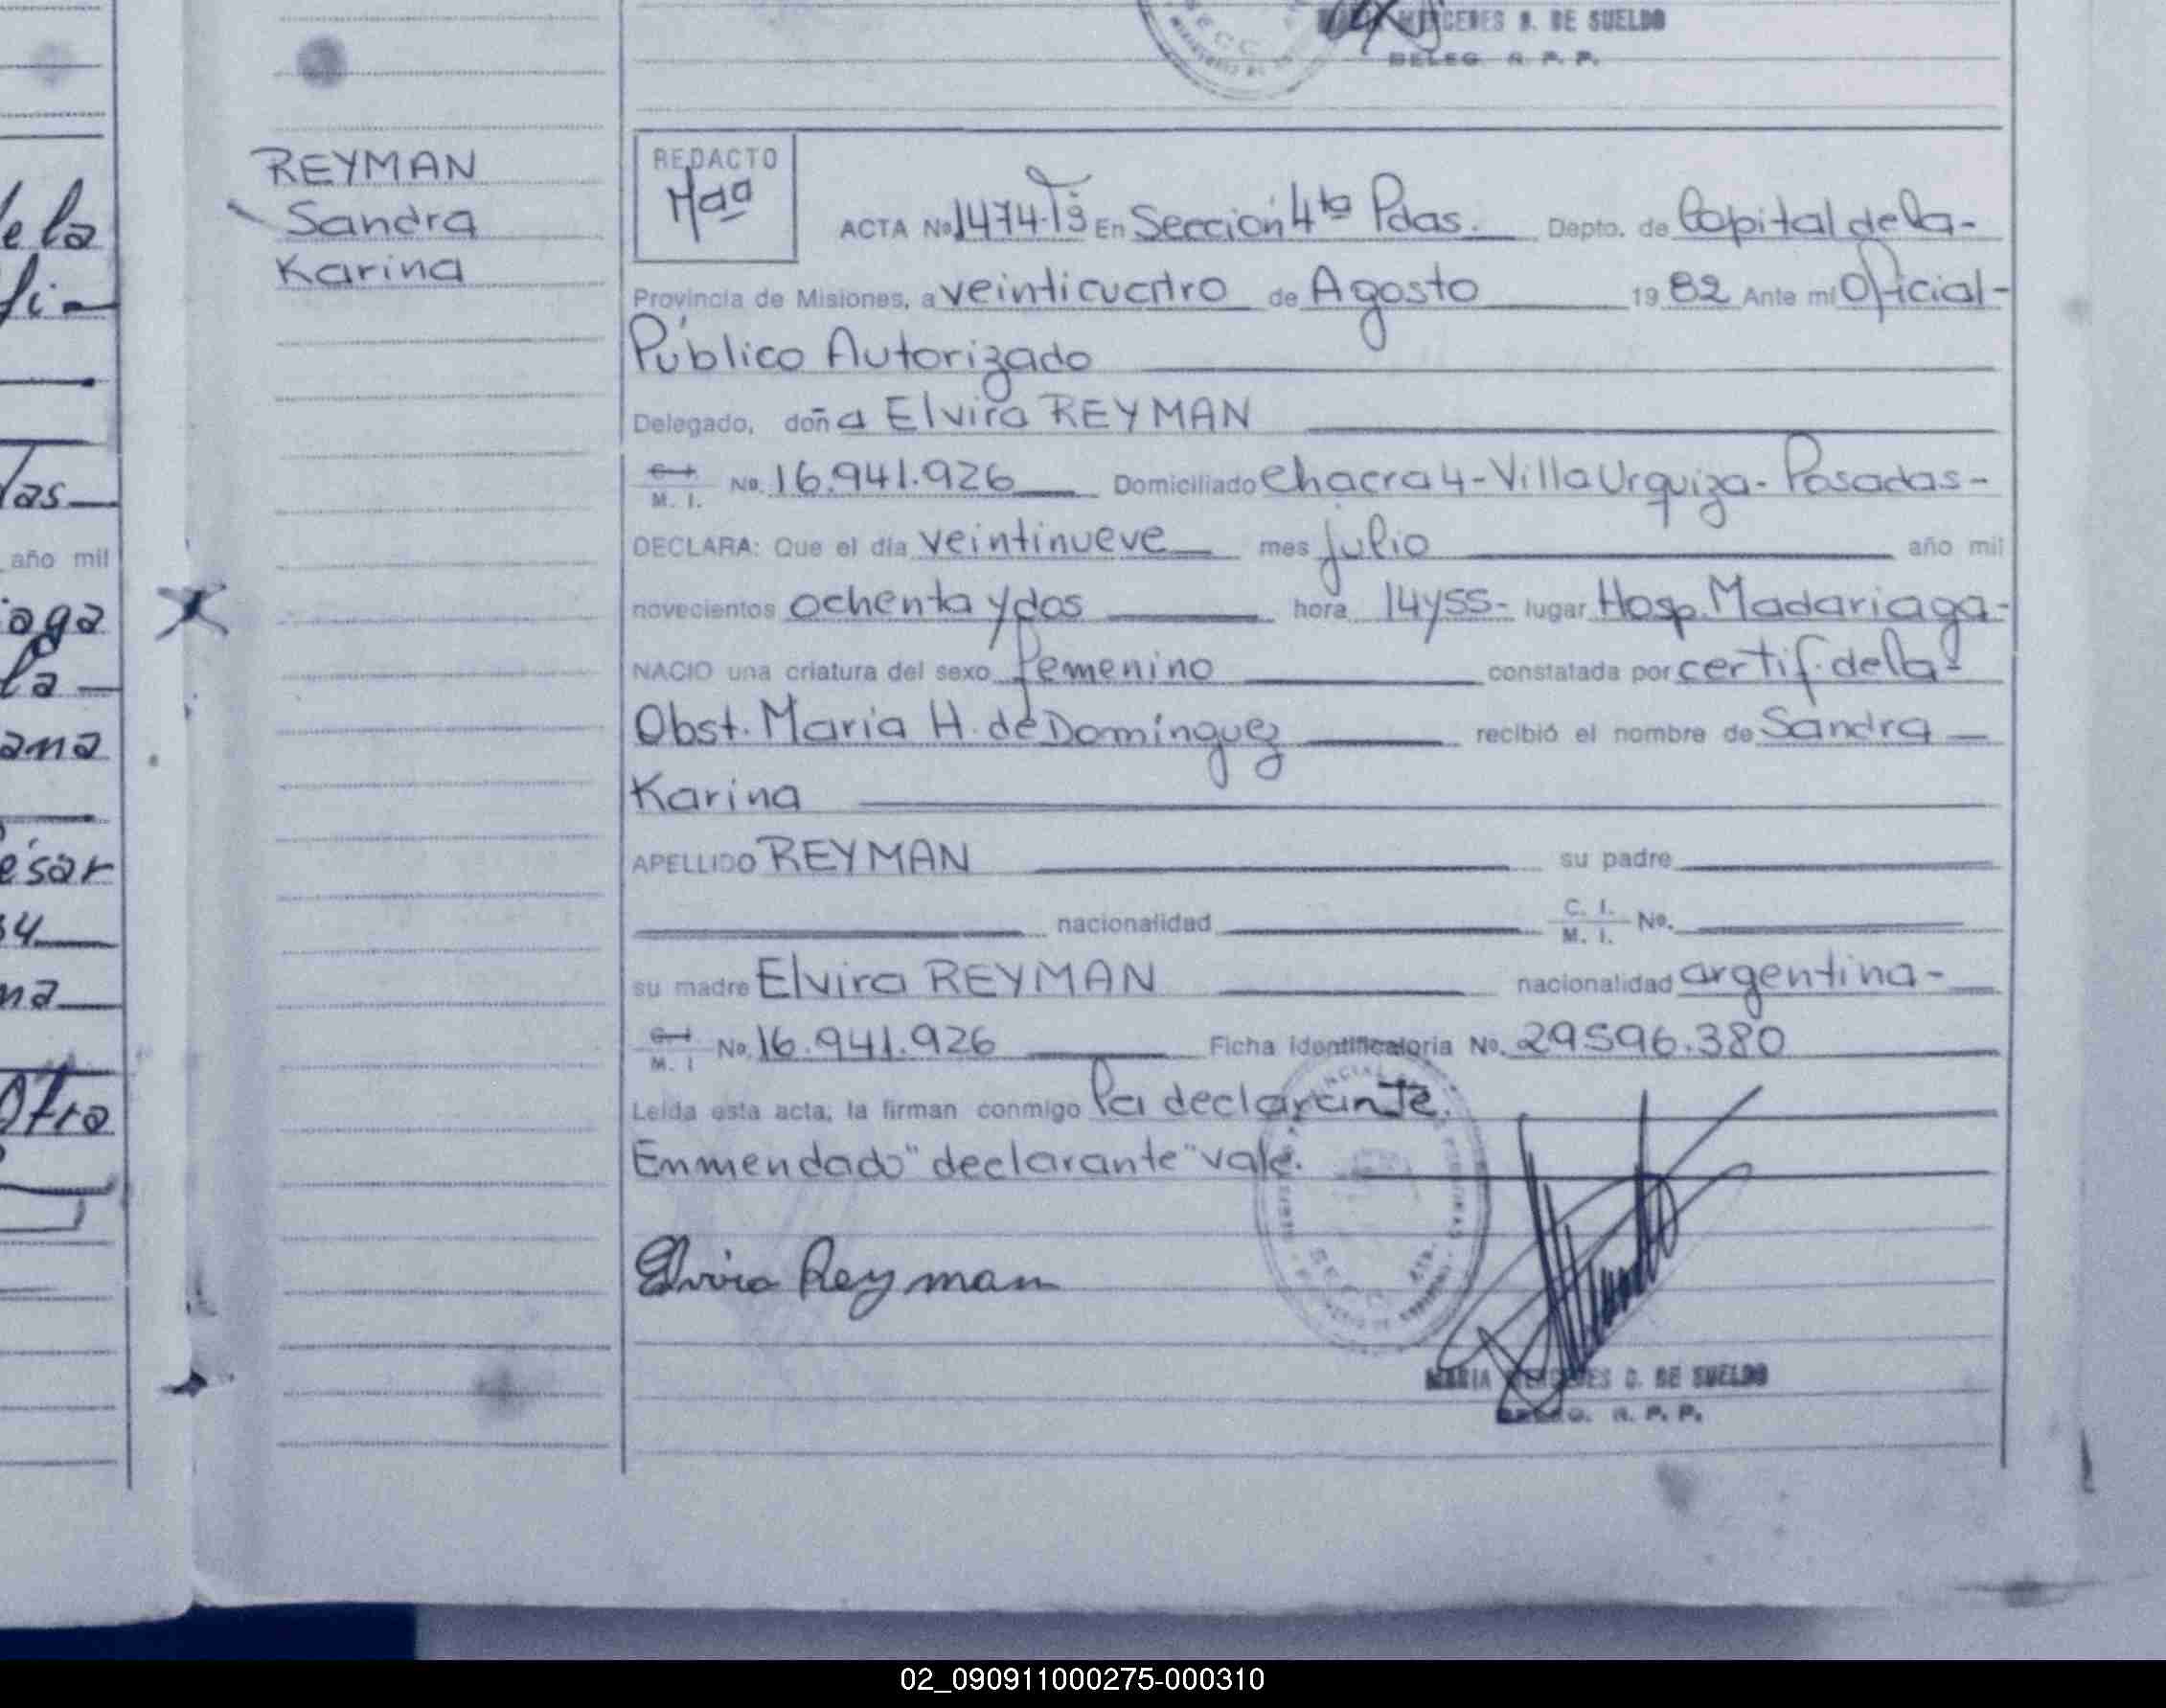 MERCEDES D. DE SUELDO
DELEG. R. P. P.
e la
fi-
das
año mil
aga
la
ana
ésar
34
na
Otra
REYMAN
Sandra
Karina
REDACTO
Maª
ACTA No 1474-Tº3 En Sección 4ta Pdas. Depto. de Capital de la-
Provincia de Misiones, a veinticuatro de Agosto 1982 Ante mí Oficial-
Público Autorizado
Delegado, doña Elvira REYMAN
C. I. M. I. No. 16.941.926 Domiciliado Chacra 4-Villa Urquiza- Posadas-
DECLARA: Que el día veintinueve mes julio año mil
novecientos ochenta y dos hora 14y55- lugar Hosp. Madariaga-
NACIO una criatura del sexo femenino constatada por certif. de la-
Obst. María H. de Domínguez recibió el nombre de Sandra
Karina
APELLIDO REYMAN su padre
nacionalidad C. I. M. I. No.
su madre Elvira REYMAN nacionalidad argentina-
C. I. M. I No. 16.941.926 Ficha Identificatoria No. 29596.380
Leída esta acta, la firman conmigo la declarante.
Enmendado "declarante" vale.
Elvira Reyman
MARIA MERCEDES D. DE SUELDO
DELEG. R. P. P.
02_090911000275-000310